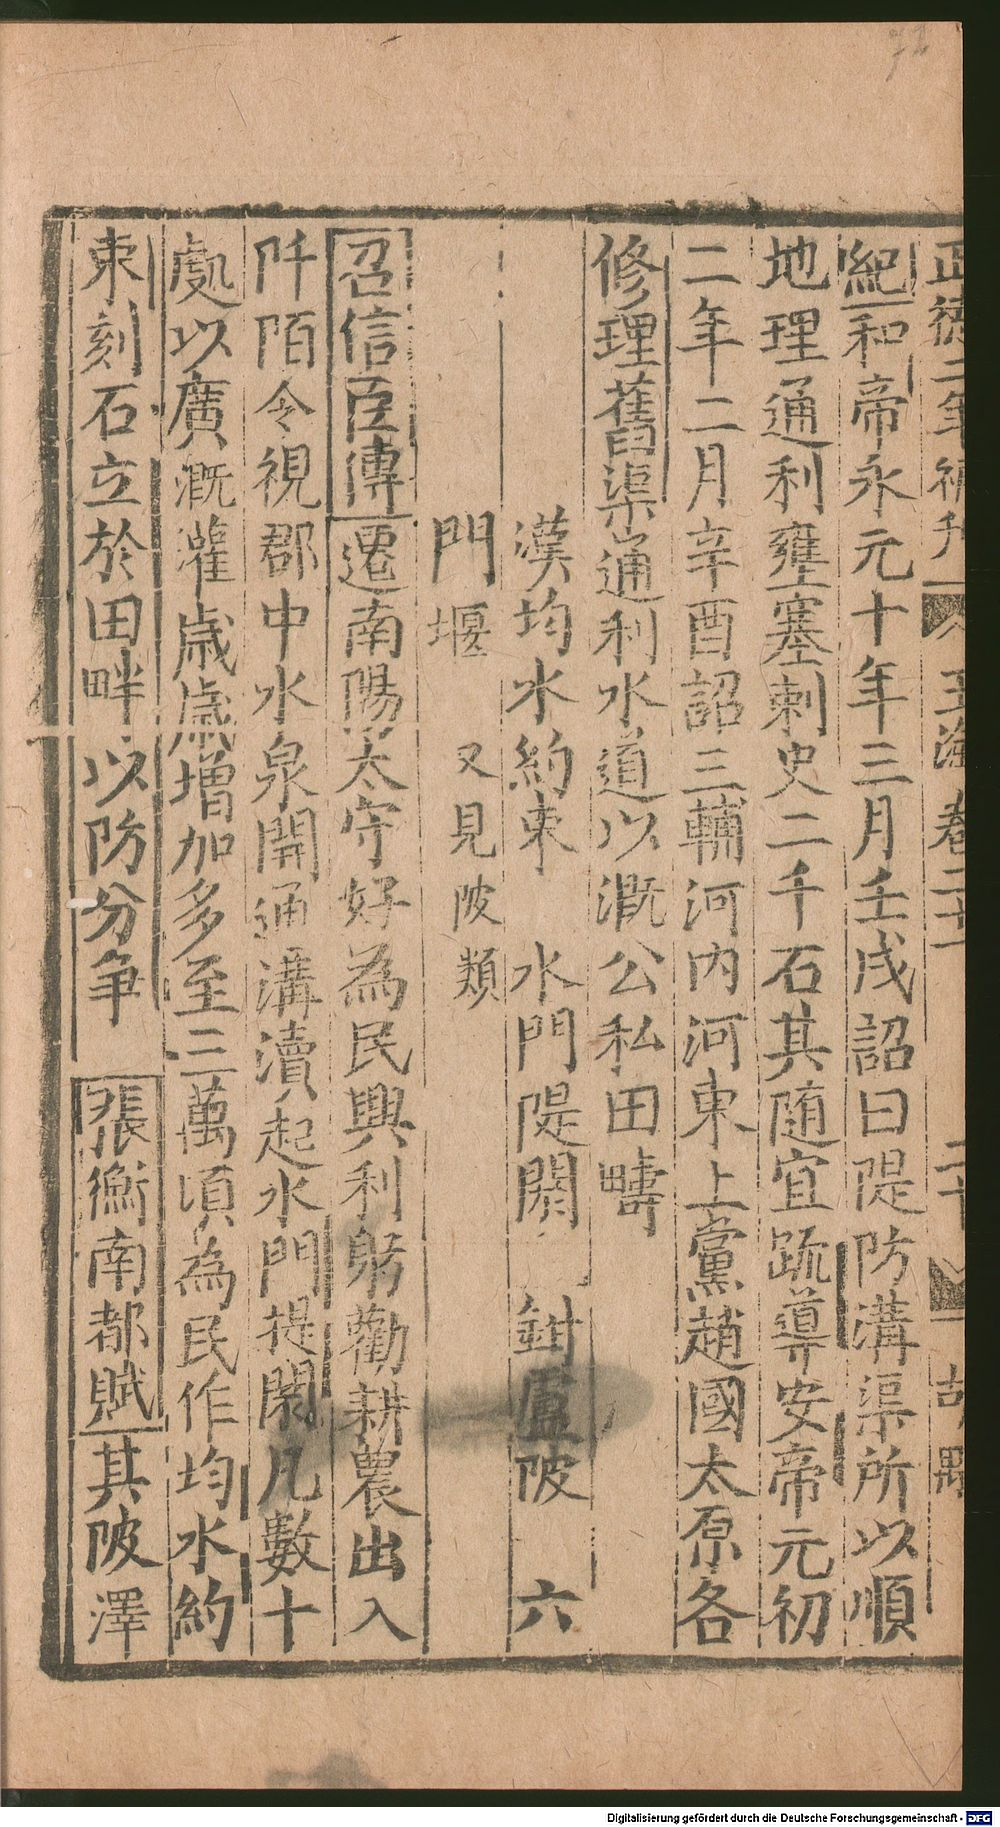 正德二年補刋 玉海卷二十 二十 胡
紀和帝永元十年三月壬戌詔曰隄防溝渠所以順
地理通利壅塞刺史二千石其隨宜疏導安帝元初
二年二月辛酉詔三輔河內河東上黨趙國太原各
修理舊渠通利水道以漑公私田疇
漢均水約束 水門隄閼 鉗盧陂 六
門堰 又見陂類
召信臣傳遷南陽太守好為民興利躬勸耕農出入
阡陌令視郡中水泉開通溝瀆起水門提閼凡數十
處以廣漑灌歲歲增加多至三萬頃為民作均水約
束刻石立於田畔以防分爭 張衡南都賦其陂澤
72
Digitalisierung gefördert durch die Deutsche Forschungsgemeinschaft - DFG